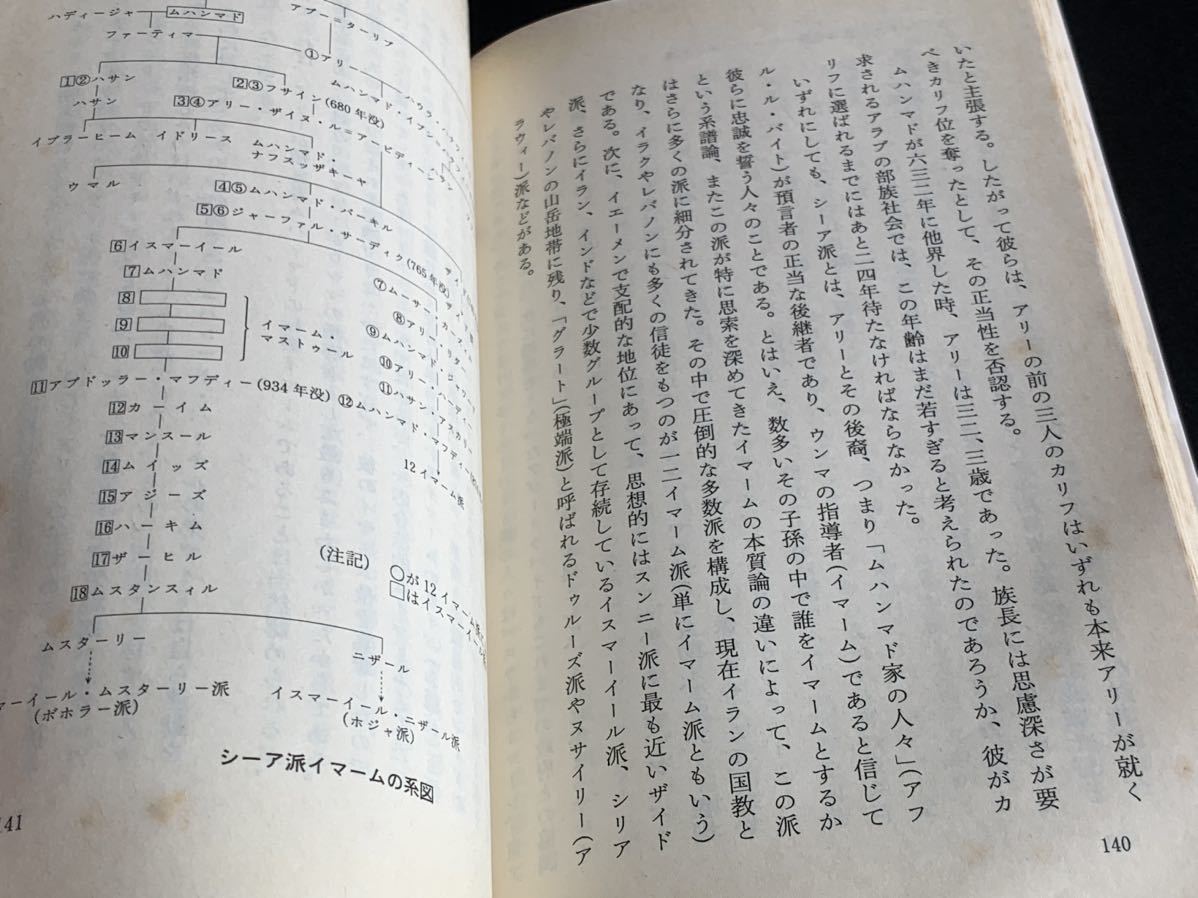 いたと主張する。したがって彼らは、アリーの前の三人のカリフはいずれも本来アリーが就く
べきカリフ位を奪ったとして、その正当性を否認する。
ムハンマドが六三二年に他界した時、アリーは三二、三歳であった。族長には思慮深さが要
求されるアラブの部族社会では、この年齢はまだ若すぎると考えられたのであろうか、彼がカ
リフに選ばれるまでにはあと二四年待たなければならなかった。
いずれにしても、シーア派とは、アリーとその後裔、つまり「ムハンマド家の人々」(アフ
ル・ル・バイト)が預言者の正当な後継者であり、ウンマの指導者(イマーム)であると信じて
彼らに忠誠を誓う人々のことである。とはいえ、数多いその子孫の中で誰をイマームとするか
という系譜論、またこの派が特に思索を深めてきたイマームの本質論の違いによって、この派
はさらに多くの派に細分されてきた。その中で圧倒的な多数派を構成し、現在イランの国教と
なり、イラクやレバノンにも多くの信徒をもつのが一二イマーム派(単にイマーム派ともいう)
である。次に、イエーメンで支配的な地位にあって、思想的にはスンニー派に最も近いザイド
派、さらにイラン、インドなどで少数グループとして存続しているイスマーイール派、シリア
やレバノンの山岳地帯に残り、「グラート」(極端派)と呼ばれるドゥルーズ派やヌサイリー(ア
ラウィー)派などがある。
140
アブー=ターリブ
ハディージャ
ムハンマド
ファーティマ
①アリー
ムハンマド・イブン
1②ハサン
2③フサイン(680年没)
ハサン
3④アリー・ザイヌ・ル=アービディーン
イブラーヒーム
イドリース
ムハンマド・
ナフスッザキーヤ
ウマル
4⑤ムハンマド・バーキル
5⑥ジャーファル・サーディク(765年没)
6イスマーイール
⑦ムーサー
7ムハンマド
⑧アリー
8
9
10
イマーム・
マストゥール
⑨ムハンマド
⑩アリー
⑪ハサン・アスカリー
11アブドッラー・マフディー(934年没)
⑫ムハンマド・マフディー
12イマーム派
12カーイム
13マンスール
14ムイッズ
15アジーズ
16ハーキム
17ザーヒル
18ムスタンスィル
(注記)
○が12イマーム
□はイスマーイール
ムスターリー
ニザール
マーイール・ムスターリー派
(ボホラー派)
イスマーイール・ニザール派
(ホジャ派)
シーア派イマームの系図
141